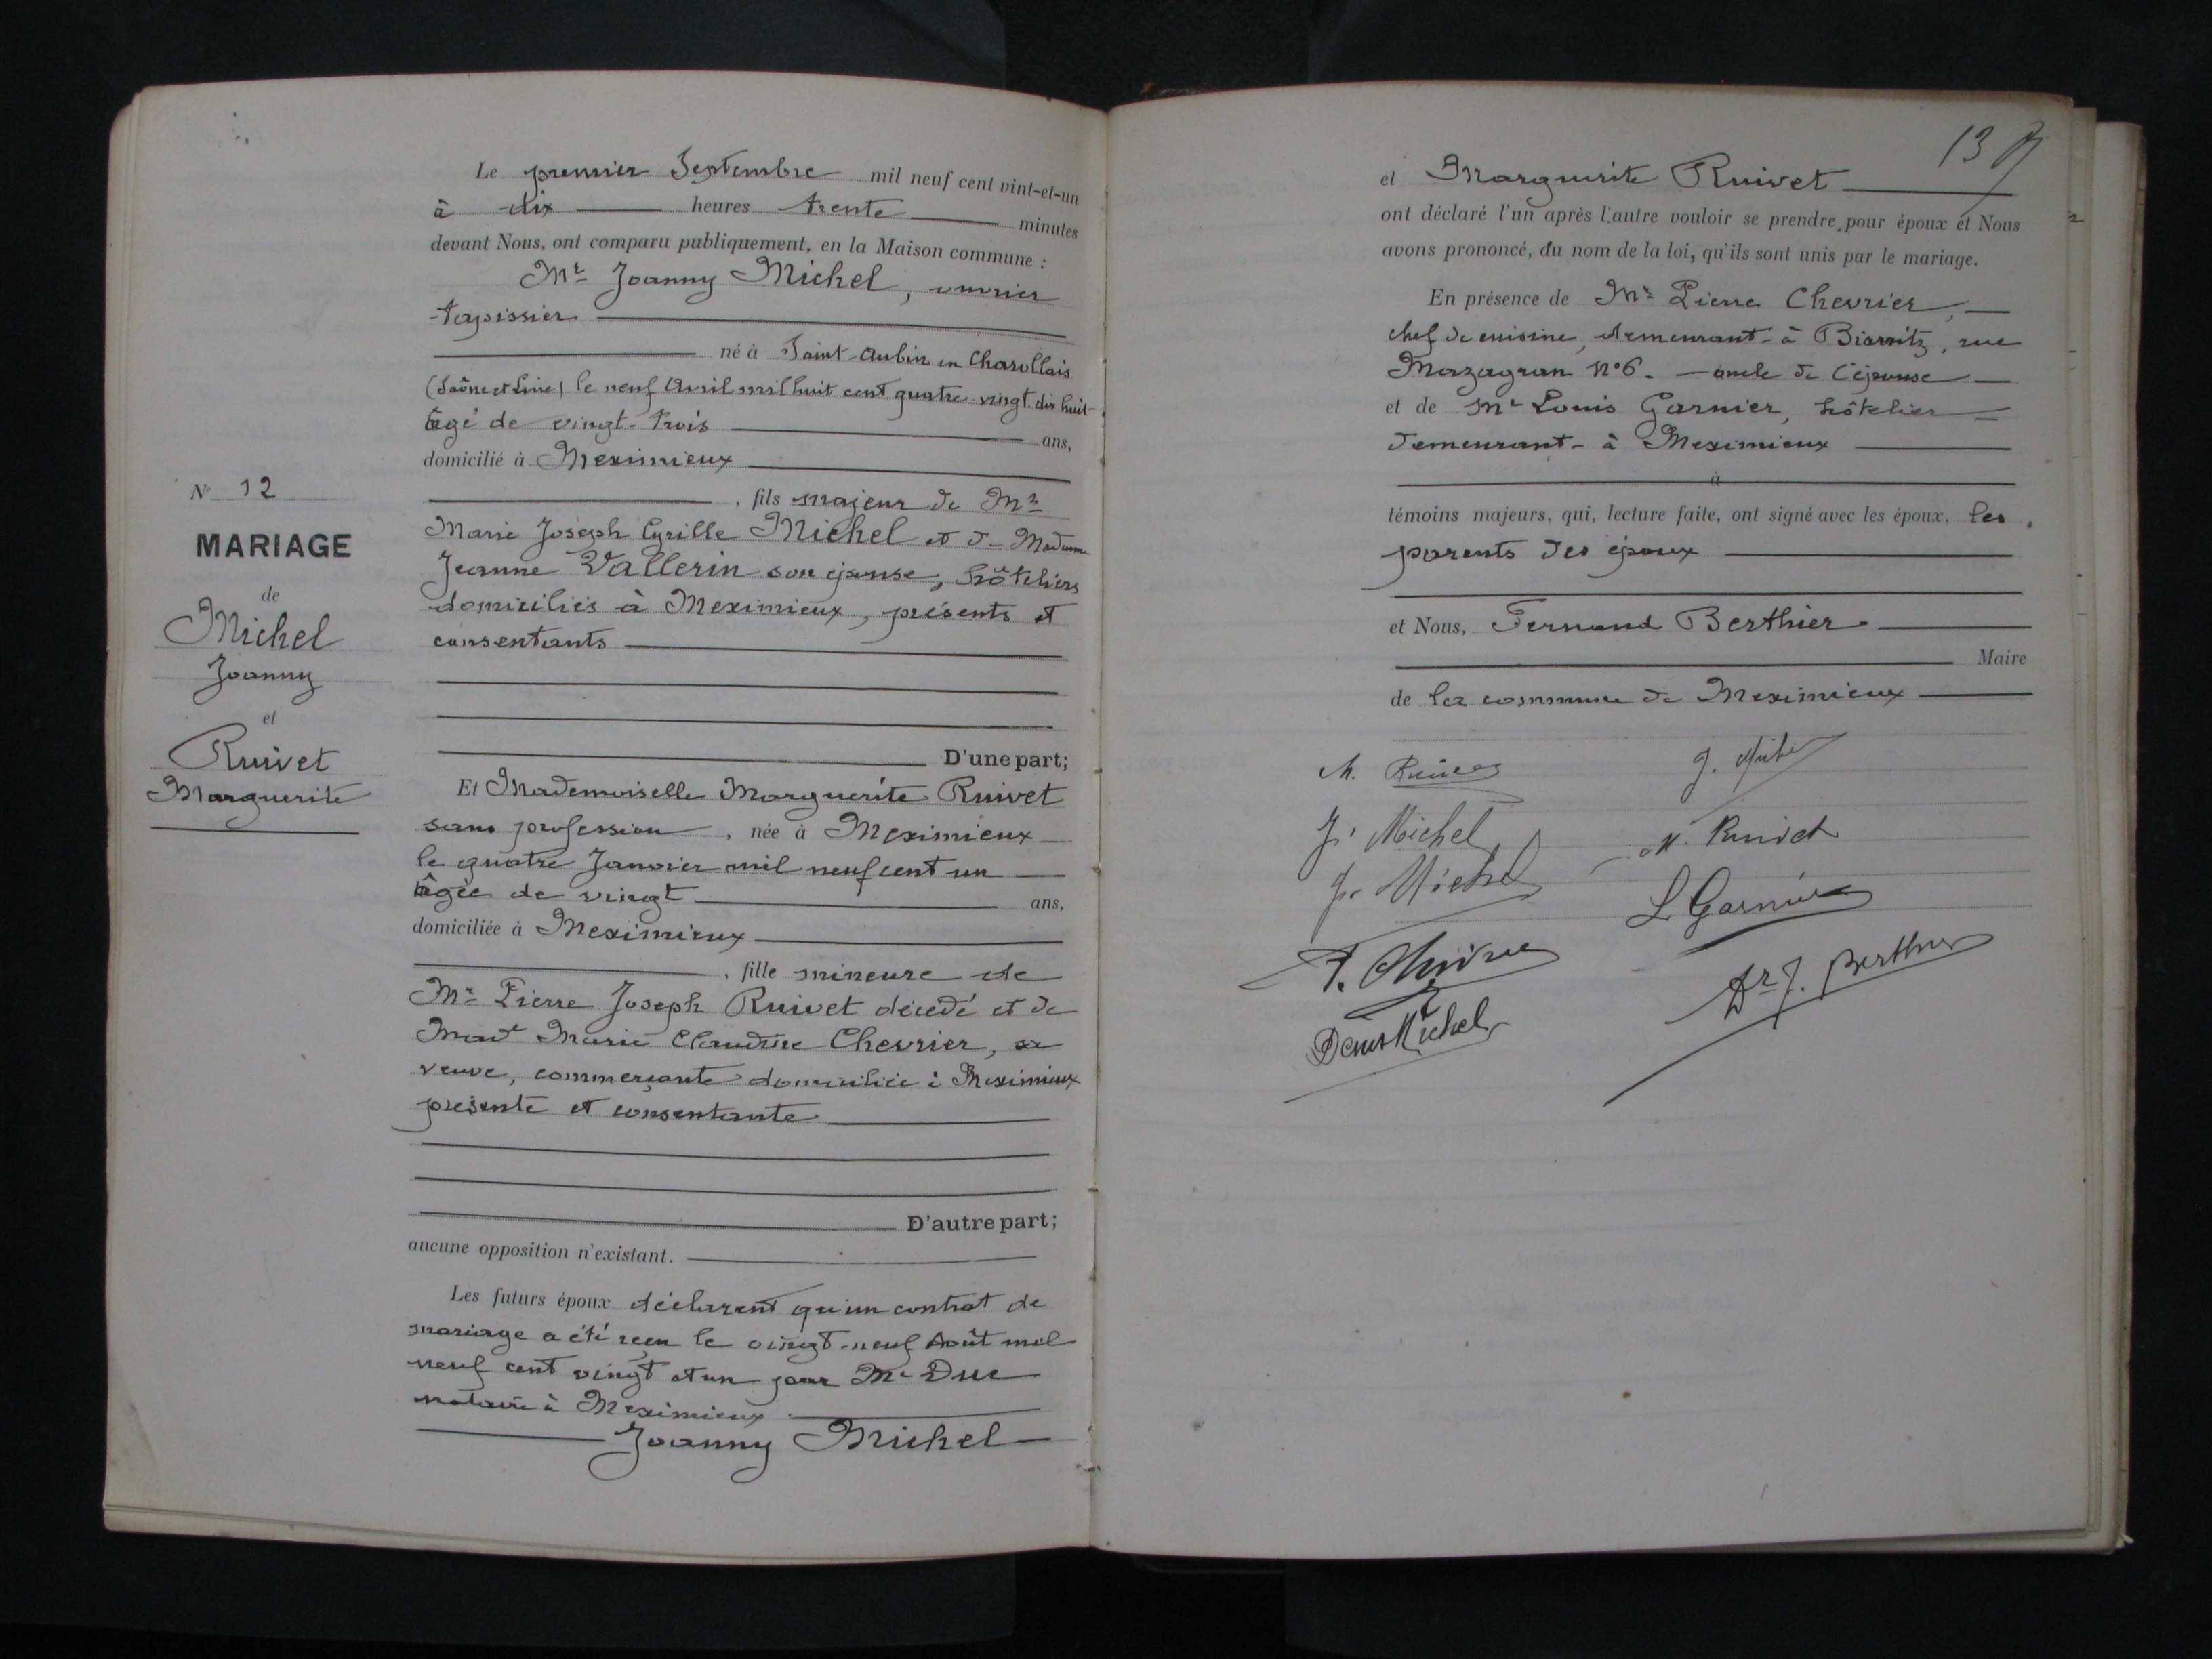 N° 12
MARIAGE
de
Michel
Joanny
et
Ruivet
Marguerite
Le premier Septembre mil neuf cent vint-et-un
à dix heures trente minutes
devant Nous, ont comparu publiquement, en la Maison commune :
Mr Joanny Michel, ouvrier
tapissier
né à Saint-Aubin en Charollais
(Saône et Loire) le neuf Avril mil huit cent quatre vingt dix huit
âgé de vingt-trois ans,
domicilié à Meximieux
, fils majeur de Mr
Marie Joseph Cyrille Michel et de Madame
Jeanne Vallerin son épouse, hôteliers
domiciliés à Meximieux, présents et
consentants
D'une part;
Et Mademoiselle Marguerite Ruivet
sans profession, née à Meximieux
le quatre Janvier mil neuf cent un
âgée de vingt ans,
domiciliée à Meximieux
, fille mineure de
Mr Pierre Joseph Ruivet décédé et de
Made Marie Claudine Chevrier, sa
veuve, commerçante domiciliée à Meximieux
présente et consentante
D'autre part;
aucune opposition n'existant.
Les futurs époux déclarent qu'un contrat de
mariage a été reçu le vingt-neuf Août mil
neuf cent vingt et un par Me Duc
notaire à Meximieux
Joanny Michel
13
et Marguerite Ruivet
ont déclaré l'un après l'autre vouloir se prendre pour époux et Nous
avons prononcé, du nom de la loi, qu'ils sont unis par le mariage.
En présence de Mr Pierre Chevrier,
chef de cuisine, demeurant à Biarritz, rue
Mazagran N°6. - oncle de l'épouse
et de Mr Louis Garnier, hôtelier
demeurant à Meximieux
à
témoins majeurs, qui, lecture faite, ont signé avec les époux, les
parents des époux
et Nous, Fernand Berthier
Maire
de la commune de Meximieux
M. Ruivet
J. Michel
J. Michel
M. Ruivet
J. Michel
L Garnier
Denis Michel
Dr F. Berthier